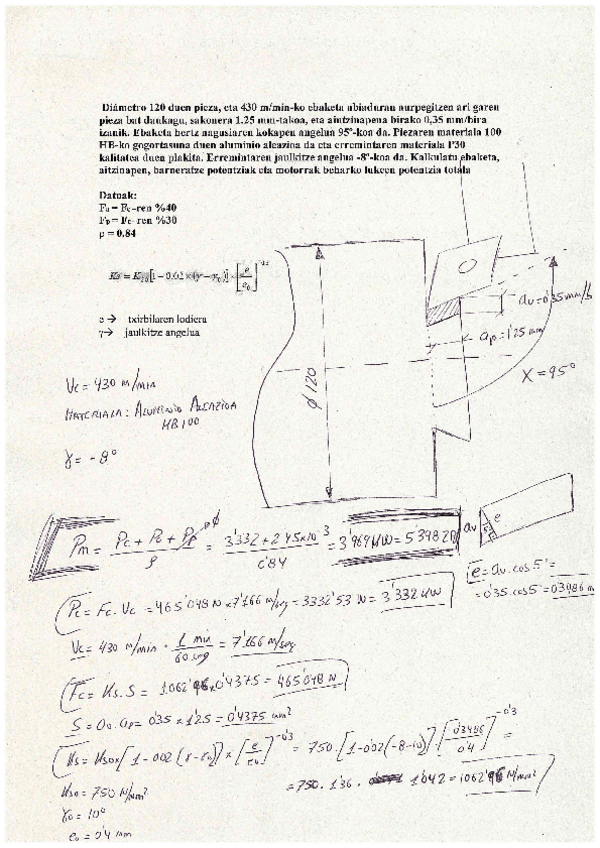 Diámetro 120 duen pieza, eta 430 m/min-ko ebaketa abiaduran aurpegitzen ari garen
pieza bat daukagu, sakonera 1.25 mm-takoa, eta aintzinapena birako 0,35 mm/bira
izanik. Ebaketa hertz nagusiaren kokapen angelua 95º-koa da. Piezaren materiala 100
HB-ko gogortasuna duen aluminio aleazioa da eta erremintaren materiala P30
kalitatea duen plakita. Erremintaren jaulkitze angelua -8º-koa da. Kalkulatu ebaketa,
aitzinapen, barneratze potentziak eta motorrak beharko lukeen potentzia totala
Datuak:
Fa = Fc-ren %40
Fp = Fc-ren %30
ρ = 0.84
e → txirbilaren lodiera
γ→ jaulkitze angelua
av=0'35 mm/b
ap=1'25 mm
X=95º
ø 120
Vc = 430 m/min
MATERIALA: ALUMINIO ALEAZIOA
HB 100
γ = -8º
= 3'969 KW = 5'398 ZP
av e
e = av. cos 5º =
= 0'35. cos 5º = 0'3486 m
Pc = Fc. Vc = 465'048 N × 7'166 m/seg = 3332'53 W = 3'332 KW
Vc = 430 m/min · 1 min / 60 seg = 7'166 m/seg
Fc = Ks. S = 1062'96 × 0'4375 = 465'048 N
S = av. ap = 0'35 × 1'25 = 0'4375 mm²
Ks = Kso × [1-0'02 (γ-γo)] × [e/eo]^-0'3 = 750. [1-0'02(-8-10)] · [0'3486/0'4]^-0'3 =
= 750. 1'36. 1'042 = 1062'96 N/mm²
Kso = 750 N/mm²
γo = 10º
eo = 0'4 mm